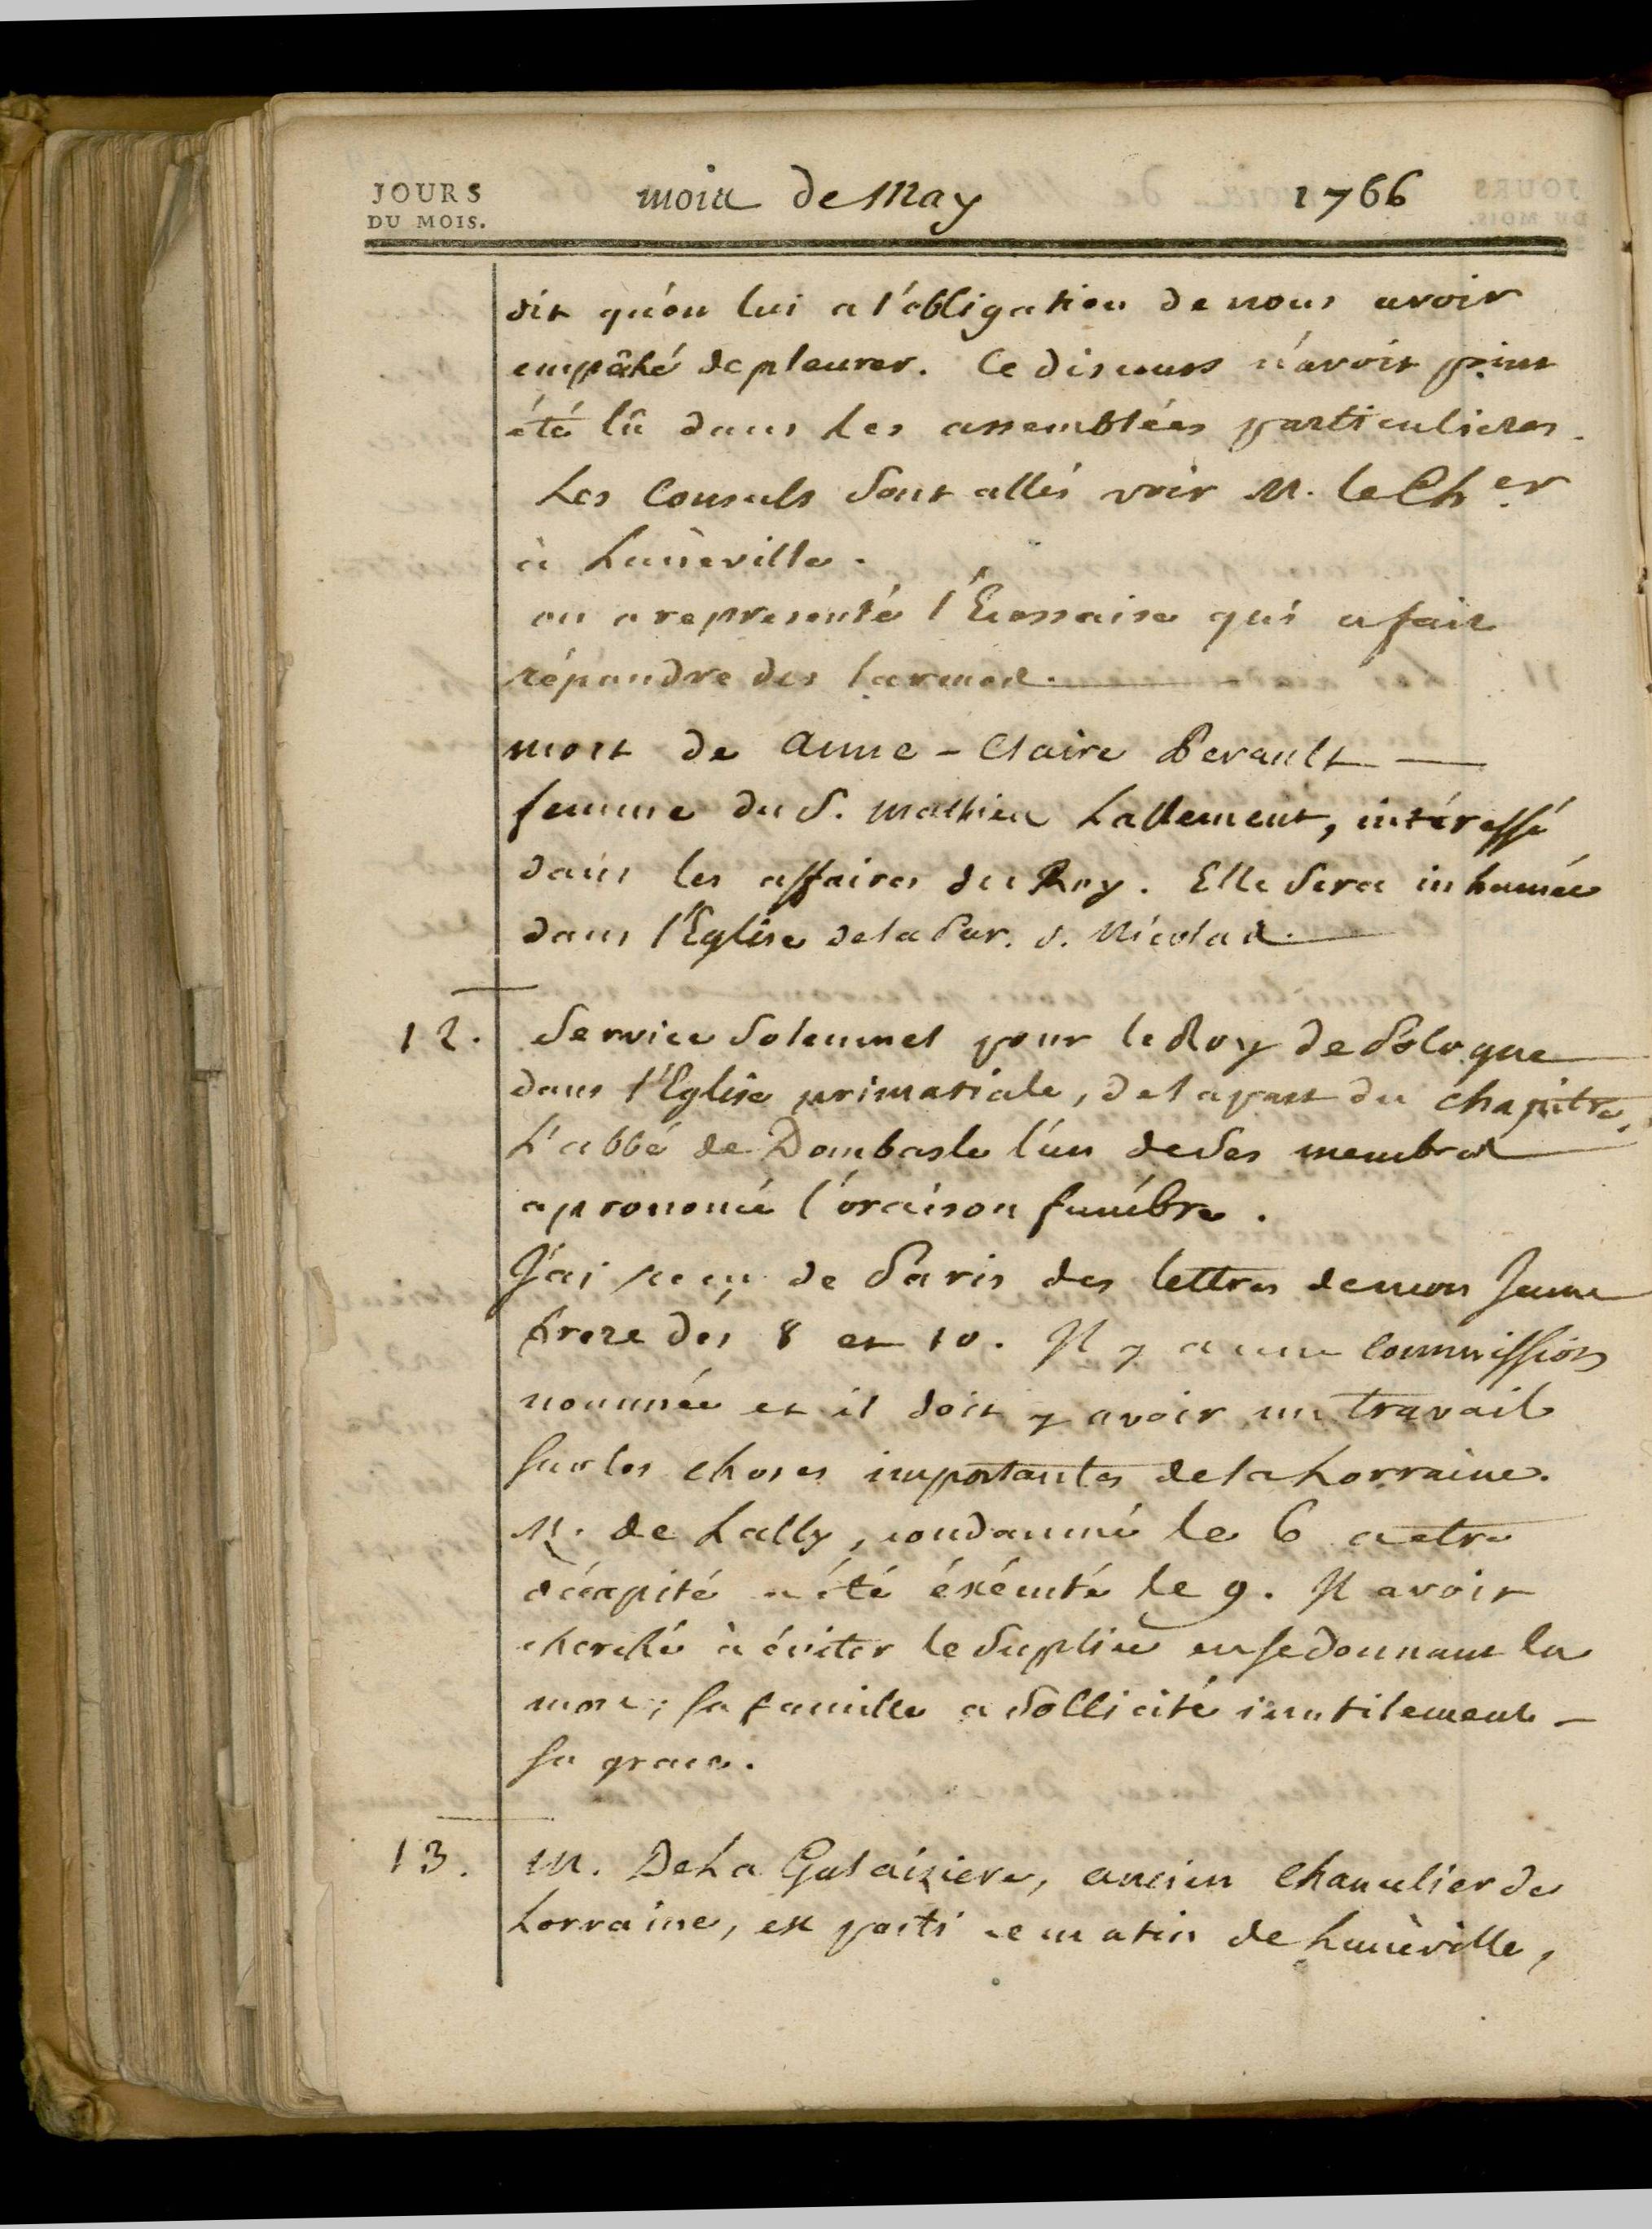 JOURS
DU MOIS.
mois de May 1766
dit qu'on lui a l'obligation de nous avoir
empêché de pleurer. Ce discours n'avoit point
été lû dans les assemblées particulieres.
Les Consuls sont allés voir M. le Ch.er
à Luneville.
on a representé l'Ecossaise qui a fait
répandre des larmes.
mort de Anne - Claire Perault —
femme du S. Mathieu Lallement, intéressé
dans les affaires du Roy. Elle sera inhumée
dans l'Eglise de la Par. S. Nicolas.
12. Service Solemnel pour le Roy de Pologne
dans l'Eglise primatiale, de la part du chapitre,
L'abbé de Dombasle l'un de ses membres
a prononcé l'oraison funébre.
J'ai reçu de Paris des lettres de mon Jeune
frere des 8 et 10. Il y a une commission
nommée et il doit y avoir un travail
sur les choses importantes de la Lorraine.
M. de Lally, condamné le 6 a etre
décapité a été éxécuté le 9. Il avoit
cherché à éviter le suplice en se donnant la
mort; sa famille a sollicité inutilement —
sa grace.
13. M. De La Galaiziere, ancien Chancelier de
Lorraine, est parti ce matin de Lunéville,